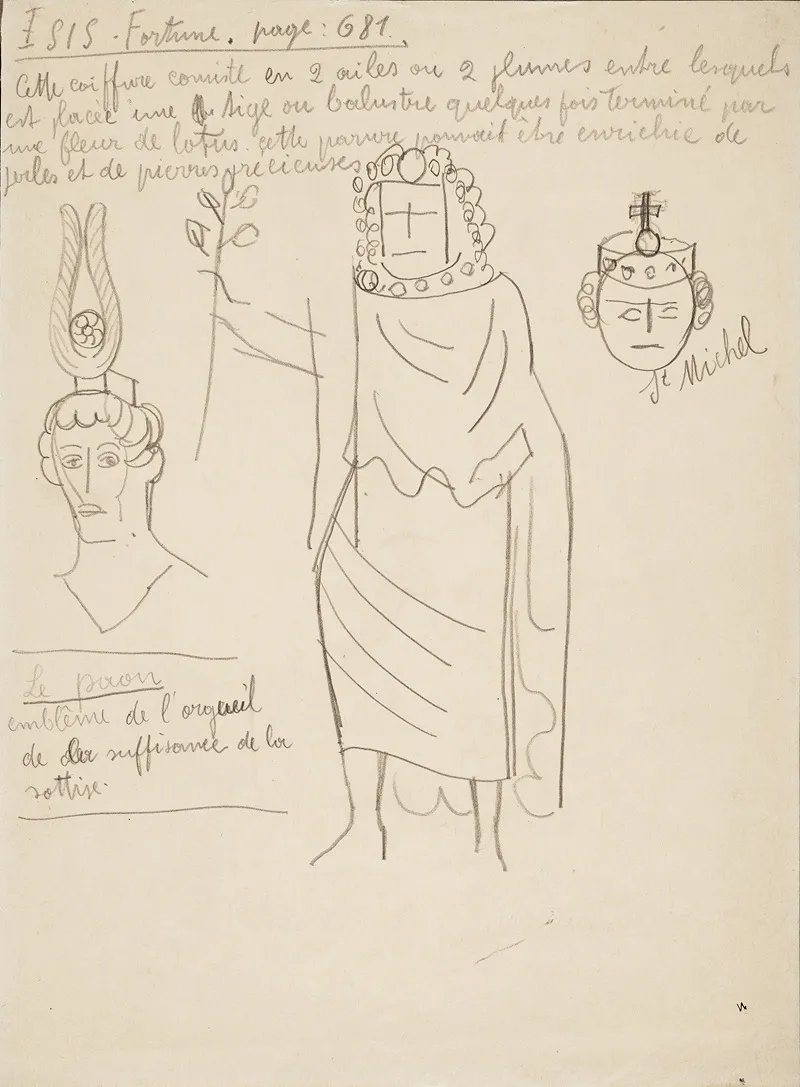 ISIS - Fortune. page : 681.
Cette coiffure consiste en 2 ailes ou 2 plumes entre lesquels
est placée une tige ou balustre quelques fois terminé par
une fleur de lotus. cette parure pouvait être enrichie de
perles et de pierres précieuses
St Michel
Le paon
emblême de l'orgueil
de la suffisance de la
sottise.